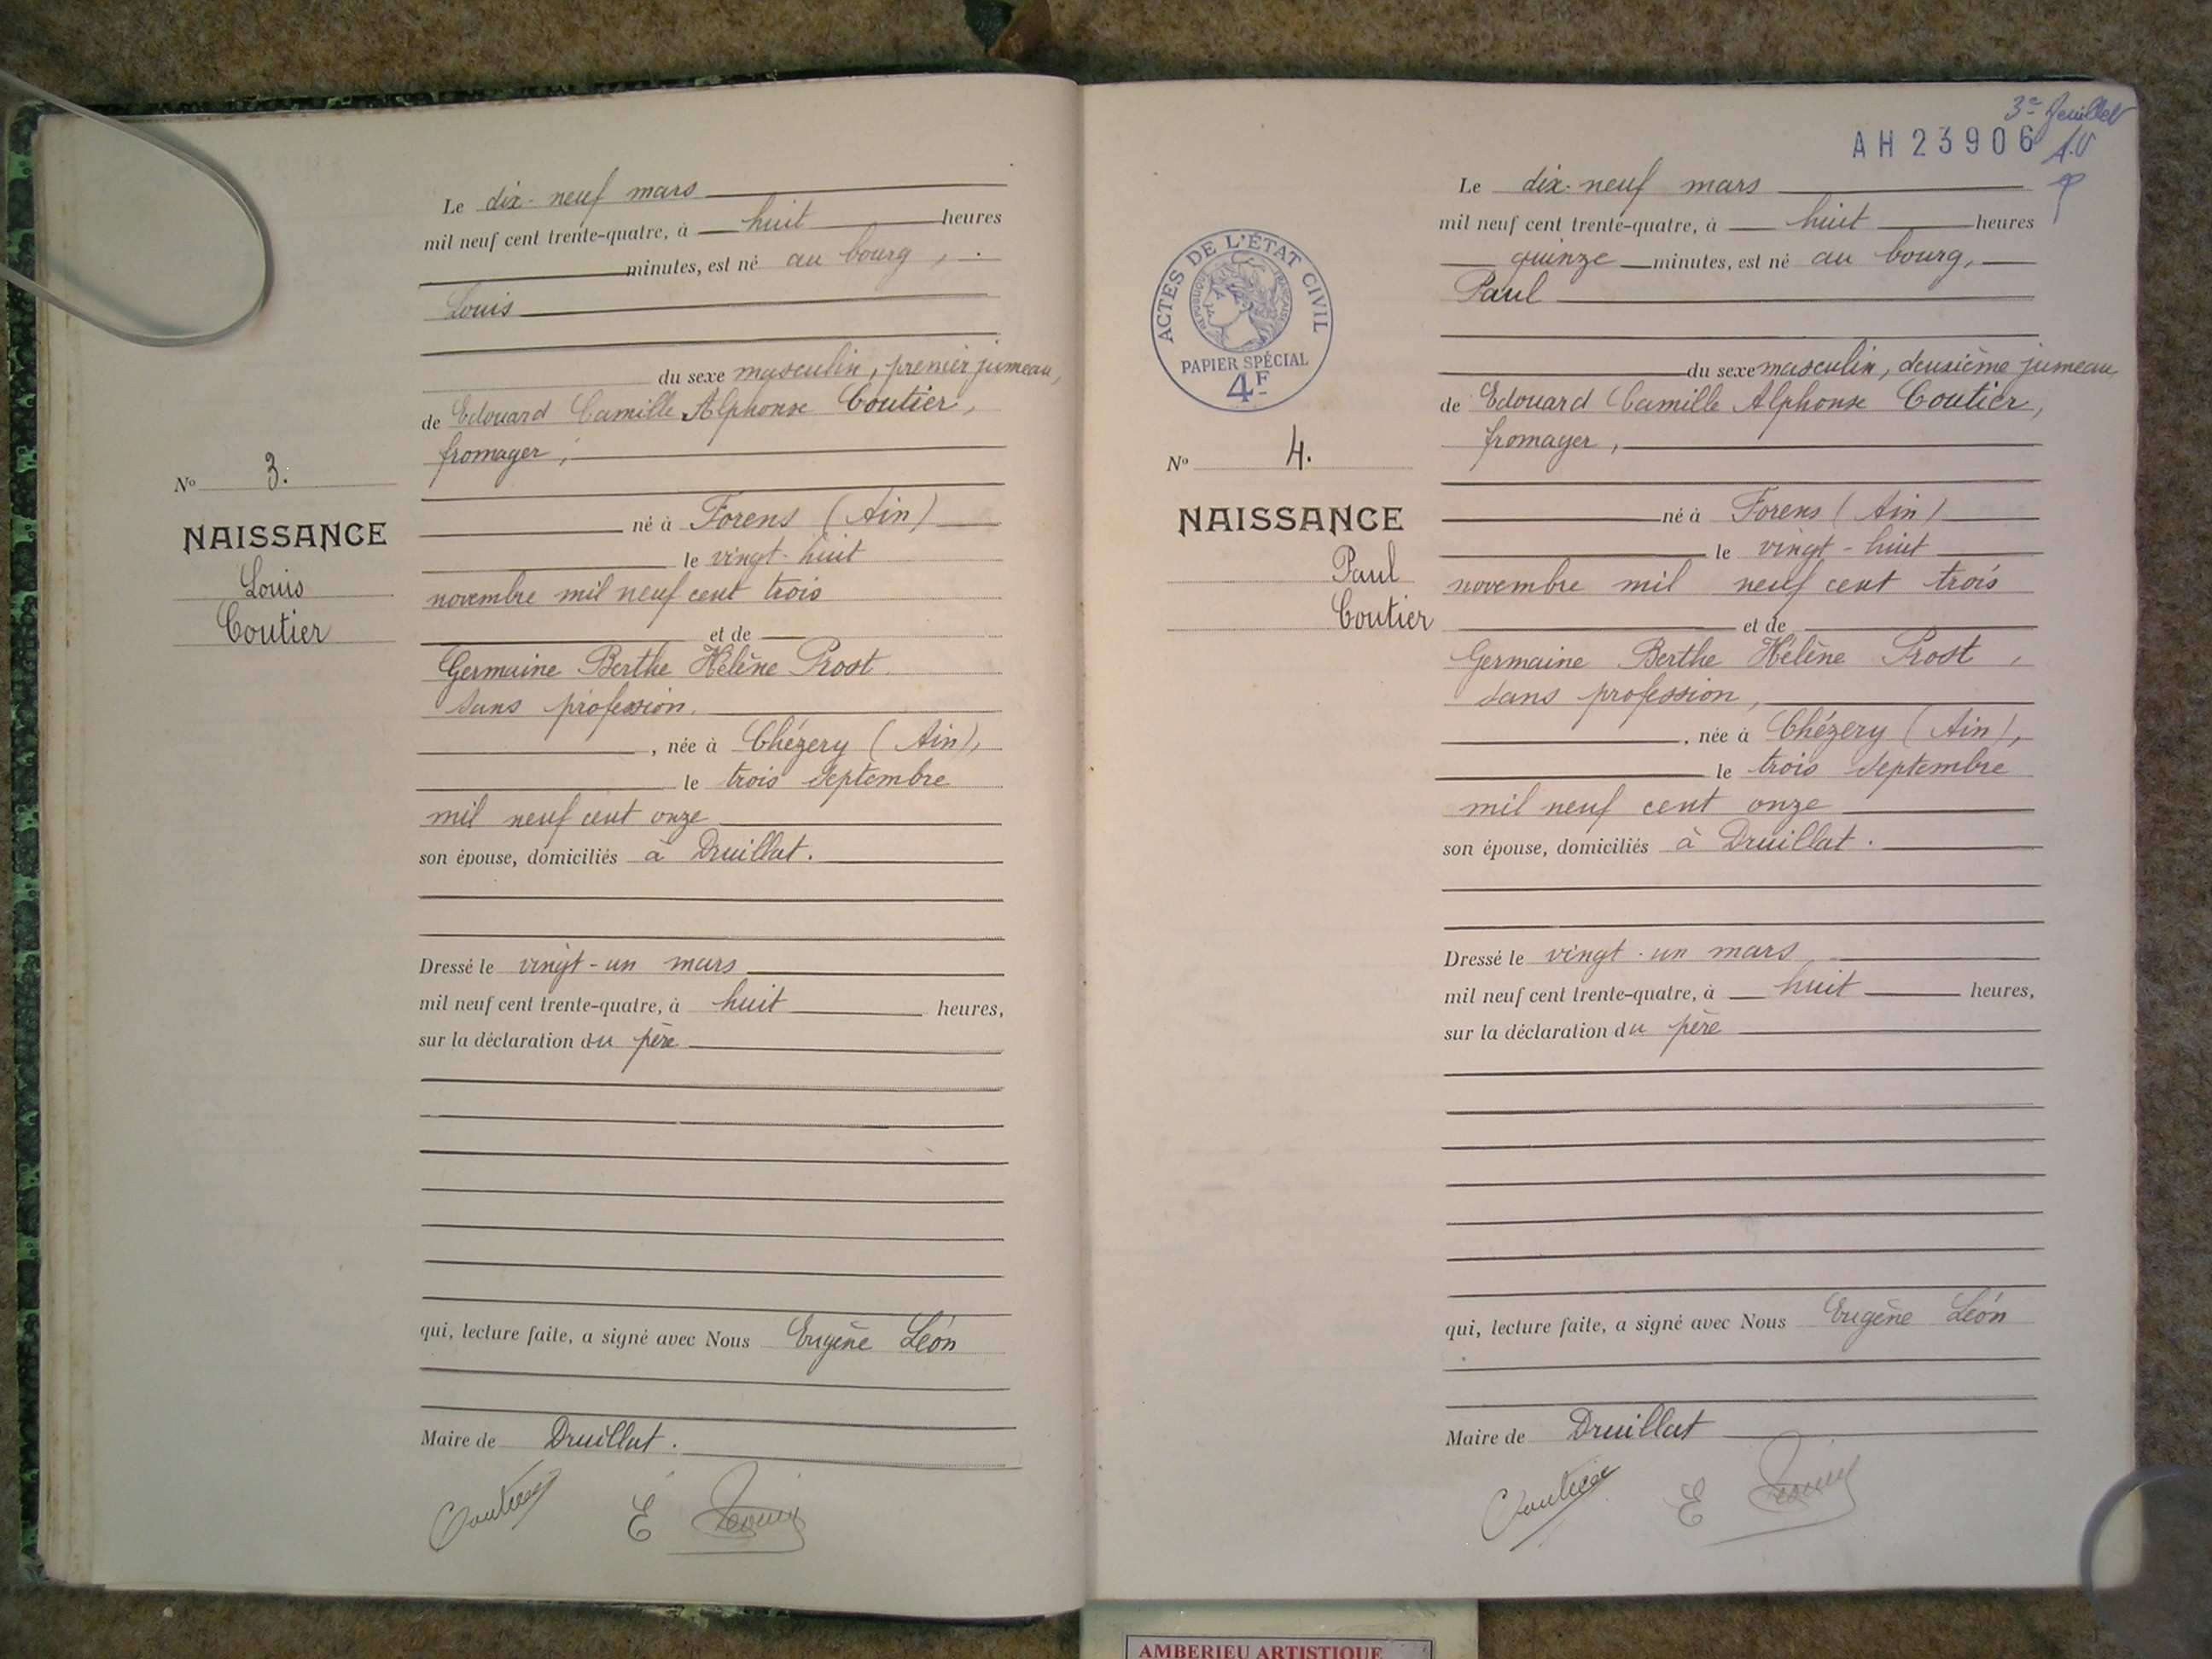 Le dix-neuf mars
mil neuf cent trente-quatre, à huit heures
minutes, est né au bourg,
Louis
du sexe masculin, premier jumeau,
de Edouard Camille Alphonse Coutier,
fromager,
né à Forens (Ain)
le vingt-huit
novembre mil neuf cent trois
et de
Germaine Berthe Hélène Prost
sans profession,
, née à Chézery (Ain),
le trois septembre
mil neuf cent onze
son épouse, domiciliés à Druillat.
Dressé le vingt-un mars
mil neuf cent trente-quatre, à huit heures,
sur la déclaration du père
qui, lecture faite, a signé avec Nous Eugène Léon
Maire de Druillat.
Coutier
E
No 3.
NAISSANCE
Louis
Coutier
3e feuillet
AH 23906
A.V
Le dix-neuf mars
mil neuf cent trente-quatre, à huit heures
quinze minutes, est né au bourg,
Paul
du sexe masculin, deuxième jumeau
de Edouard Camille Alphonse Coutier,
fromager,
né à Forens (Ain)
le vingt-huit
novembre mil neuf cent trois
et de
Germaine Berthe Hélène Prost,
sans profession,
, née à Chézery (Ain),
le trois septembre
mil neuf cent onze
son épouse, domiciliés à Druillat.
Dressé le vingt-un mars
mil neuf cent trente-quatre, à huit heures,
sur la déclaration du père
qui, lecture faite, a signé avec Nous Eugène Léon
Maire de Druillat
Coutier
E
ACTES DE L'ÉTAT CIVIL
RÉPUBLIQUE FRANÇAISE
PAPIER SPÉCIAL
4F
No 4.
NAISSANCE
Paul
Coutier
AMBERIEU ARTISTIQUE